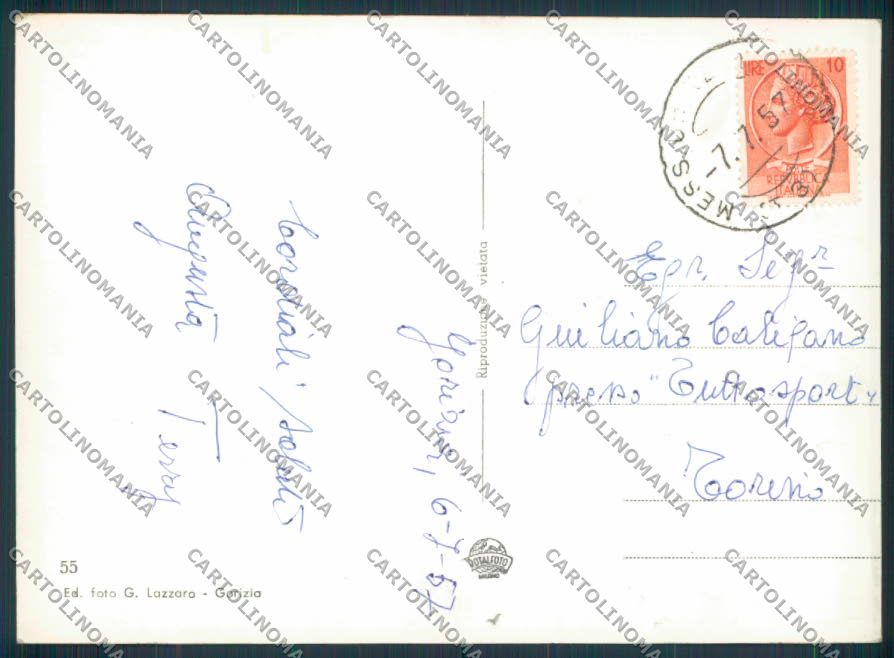 LIRE 10
REPUBBLICA
ITALIANA
MESSA
7.7.57
Gorizia, 6-7-57
Cordiali saluti
Augusta
Egr. Sigr
Giuliano Califano
presso "Tuttosport"
Torino
Riproduzione vietata
ROTALFOTO
MILANO
55
Ed. foto G. Lazzaro - Gorizia
CARTOLINOMANIA